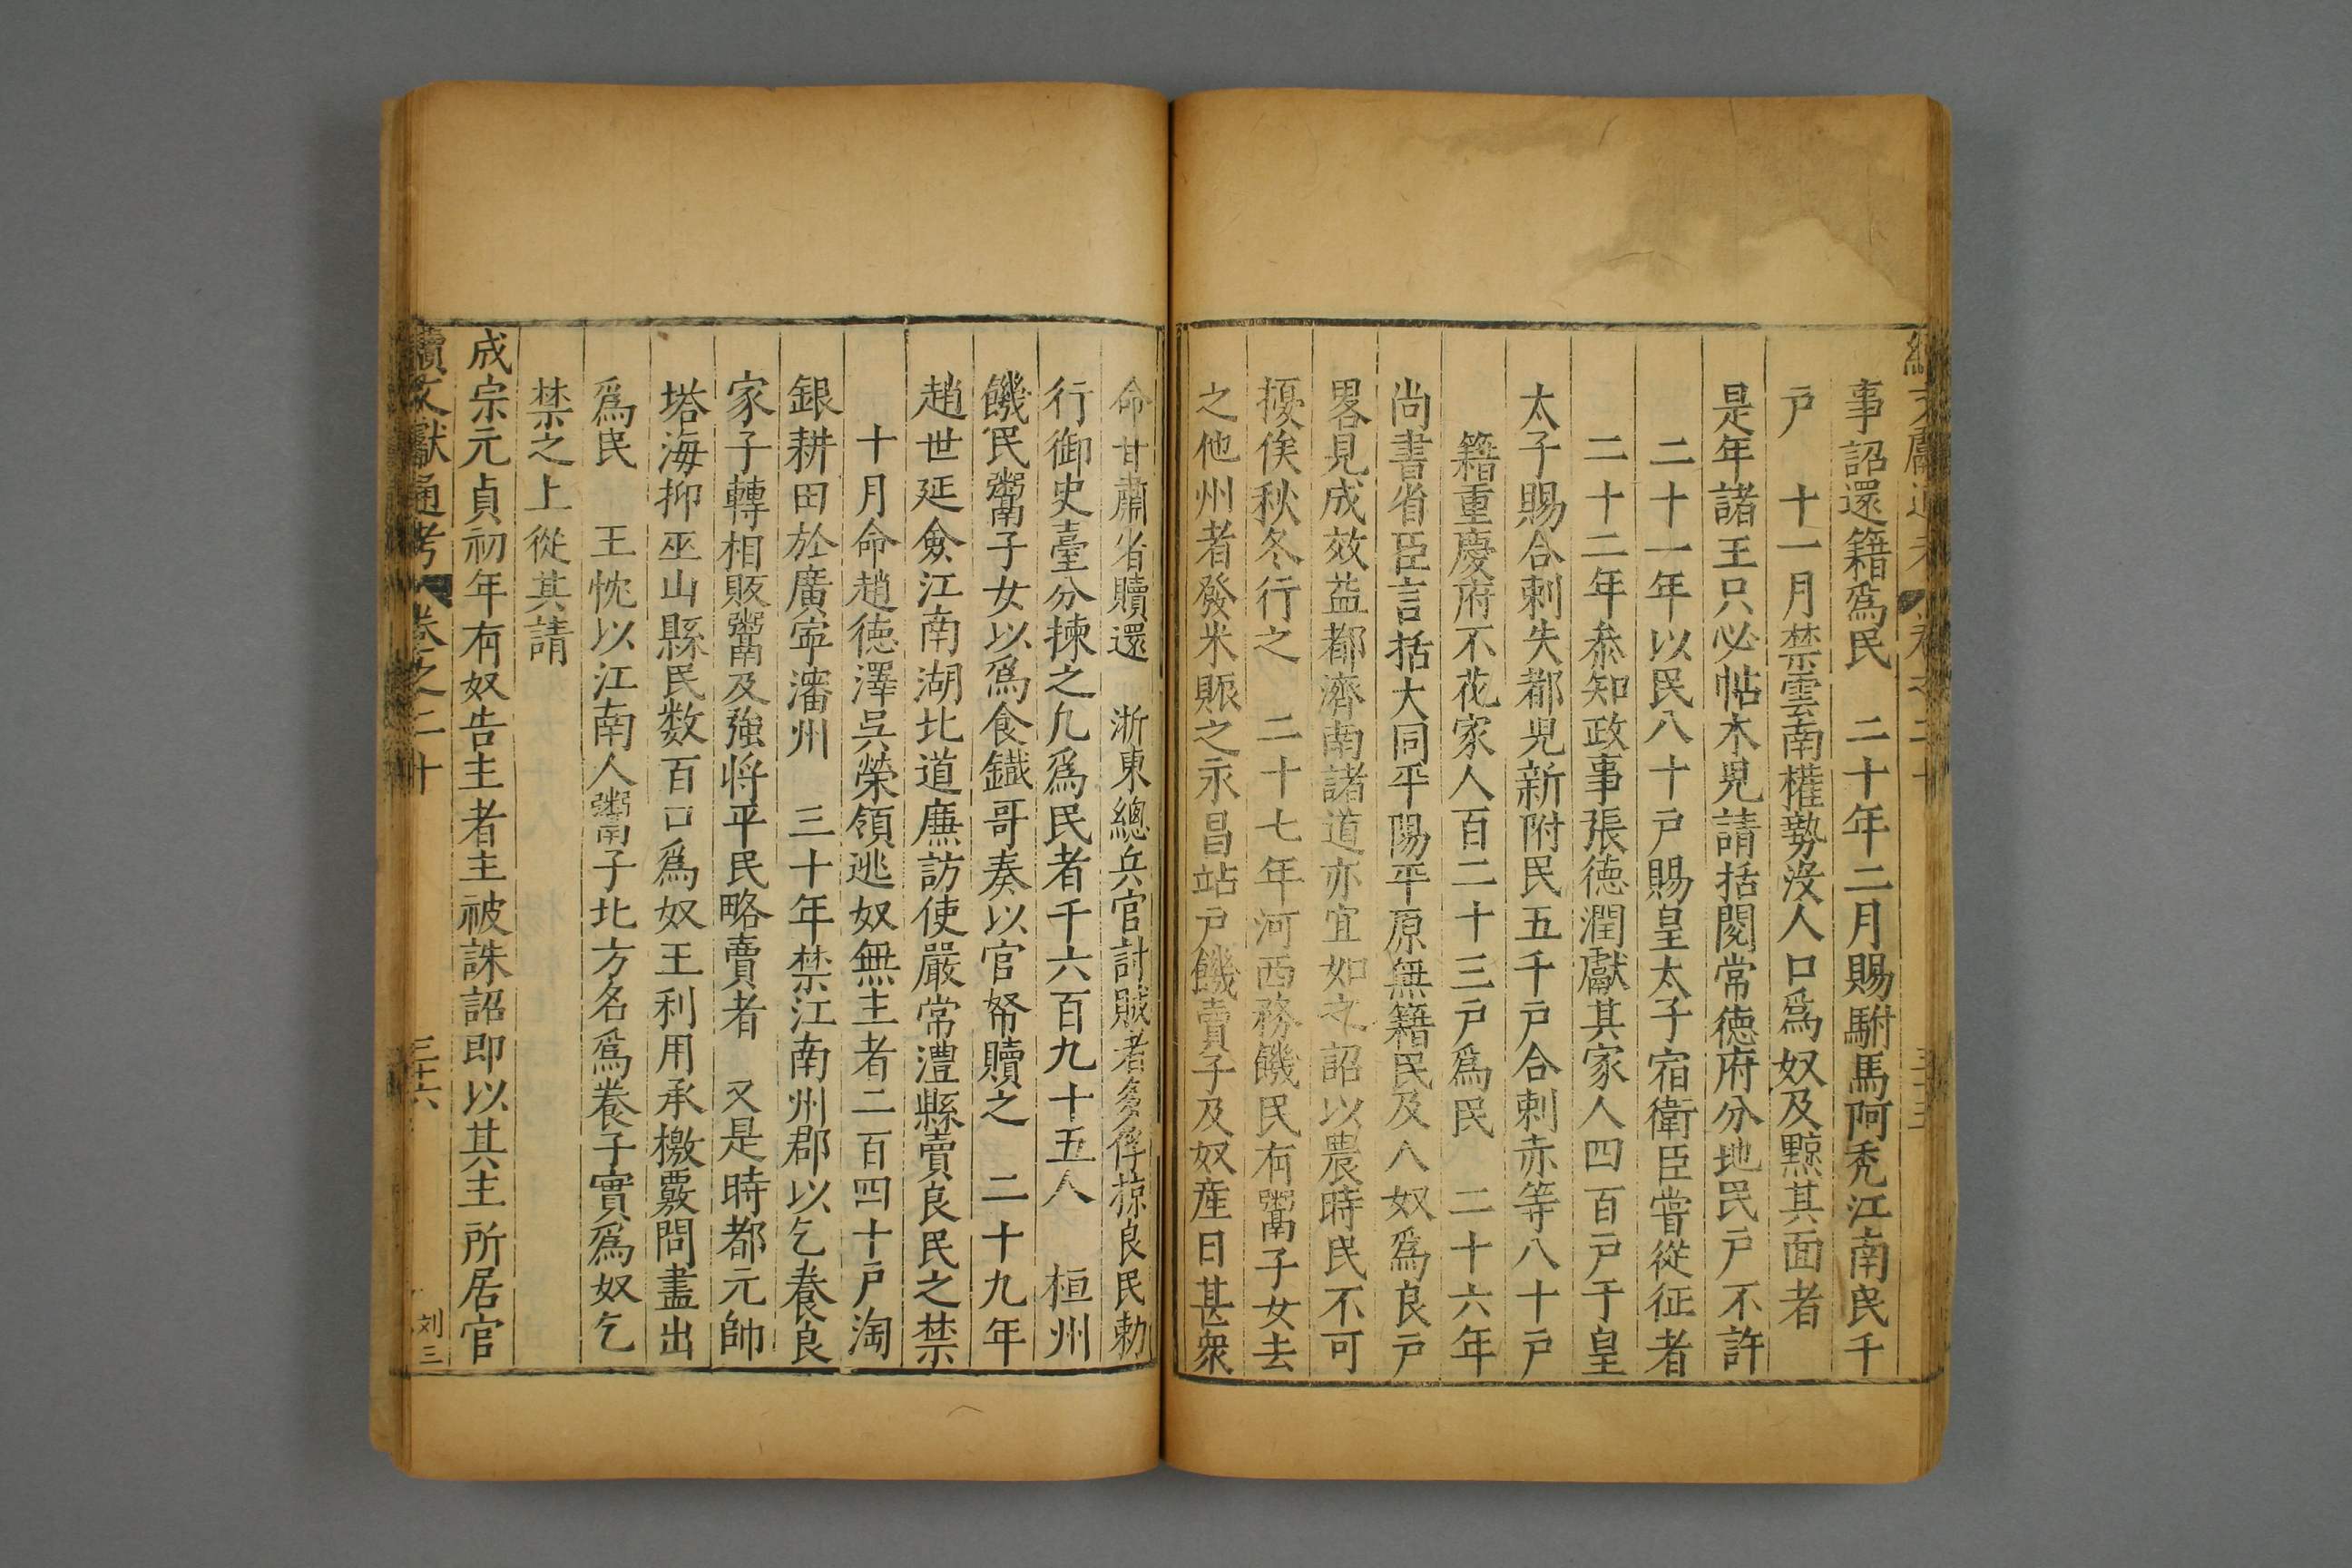 事詔還籍爲民　二十年二月賜駙馬阿秃江南民千
戸　十一月禁雲南權勢沒人口爲奴及黥其面者
是年諸王只必帖木児請括閱常徳府分地民戸不許
二十一年以民八十戸賜皇太子宿衛臣嘗從征者
二十二年叅知政事張徳潤獻其家人四百戸于皇
太子賜合剌失都児新附民五千戸合剌赤等八十戸
籍重慶府不花家人百二十三戸爲民　二十六年
尚書省臣言括大同平陽平原無籍民及人奴爲良戸
畧見成效益都濟南諸道亦宜如之詔以農時民不可
擾俟秋冬行之　二十七年河西務饑民有鬻子女去
之他州者發米賑之永昌站戸饑賣子及奴産日甚衆
命甘肅省贖還　浙東總兵官討賊者多俘掠良民勅
行御史臺分揀之凢爲民者千六百九十五人　桓州
饑民鬻子女以爲食鐡哥奏以官帑贖之　二十九年
趙世延僉江南湖北道廉訪使嚴常澧縣賣良民之禁
十月命趙徳澤呉榮領逃奴無主者二百四十戸淘
銀耕田於廣寧瀋州　三十年禁江南州郡以乞養良
家子轉相販鬻及強將平民略賣者　又是時都元帥
塔海抑巫山縣民数百口爲奴王利用承檄覈問盡出
爲民　王忱以江南人鬻子北方名爲養子實爲奴乞
禁之上從其請
成宗元貞初年有奴告主者主被誅詔即以其主所居官
續文獻通考　卷之二十　三十六　刘三